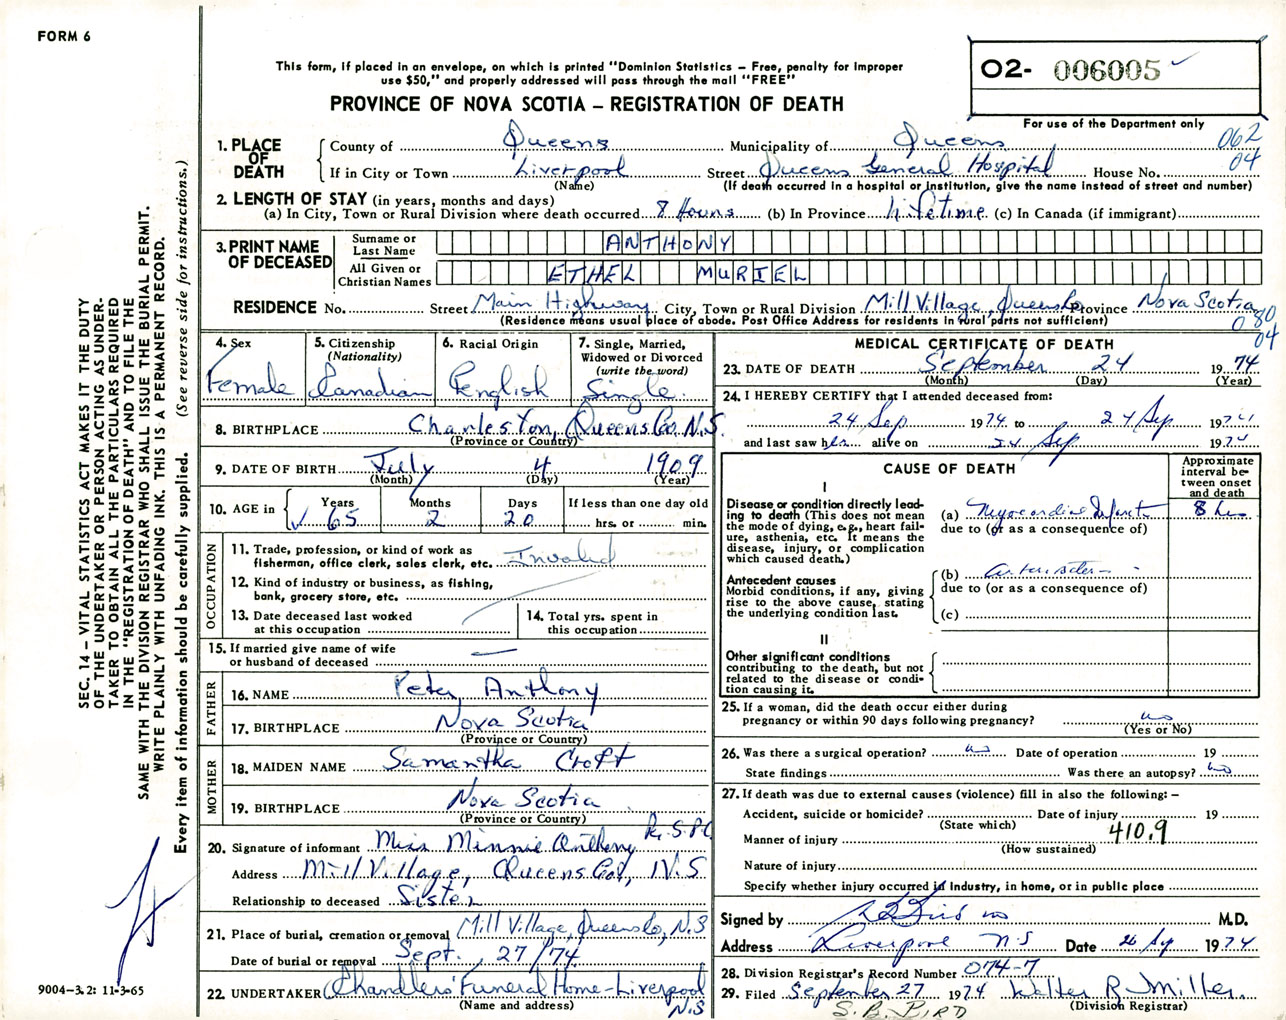 FORM 6
This form, if placed in an envelope, on which is printed "Dominion Statistics – Free, penalty for improper
use $50," and properly addressed will pass through the mail "FREE"
PROVINCE OF NOVA SCOTIA – REGISTRATION OF DEATH
02- 006005
For use of the Department only
062
04
1. PLACE OF DEATH
County of Queens Municipality of Queens
If in City or Town Liverpool Street Queens General Hospital House No.
(Name) (If death occurred in a hospital or institution, give the name instead of street and number)
2. LENGTH OF STAY (in years, months and days)
(a) In City, Town or Rural Division where death occurred 8 Hours (b) In Province Lifetime (c) In Canada (if immigrant)
3. PRINT NAME OF DECEASED
Surname or Last Name ANTHONY
All Given or Christian Names ETHEL MURIEL
RESIDENCE No. Street Main Highway City, Town or Rural Division Mill Village, Queens Co Province Nova Scotia
(Residence means usual place of abode. Post Office Address for residents in rural parts not sufficient)
080
04
4. Sex Female
5. Citizenship (Nationality) Canadian
6. Racial Origin English
7. Single, Married, Widowed or Divorced (write the word) Single
8. BIRTHPLACE Charleston, Queens Co. N.S.
(Province or Country)
9. DATE OF BIRTH July 4 1909
(Month) (Day) (Year)
10. AGE in Years Months Days If less than one day old
✓ 65 2 20 hrs. or min.
OCCUPATION
11. Trade, profession, or kind of work as
fisherman, office clerk, sales clerk, etc. Invalid
12. Kind of industry or business, as fishing,
bank, grocery store, etc.
13. Date deceased last worked
at this occupation
14. Total yrs. spent in
this occupation
15. If married give name of wife
or husband of deceased —
FATHER
16. NAME Peter Anthony
17. BIRTHPLACE Nova Scotia
(Province or Country)
MOTHER
18. MAIDEN NAME Samantha Croft
19. BIRTHPLACE Nova Scotia
(Province or Country)
20. Signature of informant Miss Minnie Anthony
Address Mill Village, Queens Co., N.S
Relationship to deceased Sister
21. Place of burial, cremation or removal Mill Village, Queens Co, N.S
Date of burial or removal Sept. 27/74
22. UNDERTAKER Chandlers' Funeral Home - Liverpool
(Name and address) N.S
MEDICAL CERTIFICATE OF DEATH
23. DATE OF DEATH September 24 1974
(Month) (Day) (Year)
24. I HEREBY CERTIFY that I attended deceased from:
24 Sep 1974 to 24 Sep 1974
and last saw h alive on 24 Sep 1974
CAUSE OF DEATH
Approximate interval between onset and death
I
Disease or condition directly lead-
ing to death (This does not mean
the mode of dying, e.g., heart fail-
ure, asthenia, etc. It means the
disease, injury, or complication
which caused death.)
(a) Myocardial Infarct 8 hrs
due to (or as a consequence of)
Antecedent causes
Morbid conditions, if any, giving
rise to the above cause, stating
the underlying condition last.
(b)
due to (or as a consequence of)
(c)
II
Other significant conditions
contributing to the death, but not
related to the disease or condi-
tion causing it.
25. If a woman, did the death occur either during
pregnancy or within 90 days following pregnancy? no
(Yes or No)
26. Was there a surgical operation? no Date of operation 19
State findings Was there an autopsy? no
27. If death was due to external causes (violence) fill in also the following: –
Accident, suicide or homicide? Date of injury 19
(State which)
Manner of injury 410.9
(How sustained)
Nature of injury
Specify whether injury occurred in industry, in home, or in public place
Signed by M.D.
Address Liverpool N.S Date 26 Sep 1974
28. Division Registrar's Record Number 074-7
29. Filed September 27 1974 Walter R. Miller
(Division Registrar)
S. B. BIRD
SEC. 14 – VITAL STATISTICS ACT MAKES IT THE DUTY
OF THE UNDERTAKER OR PERSON ACTING AS UNDER-
TAKER TO OBTAIN ALL THE PARTICULARS REQUIRED
IN THE "REGISTRATION OF DEATH" AND TO FILE THE
SAME WITH THE DIVISION REGISTRAR WHO SHALL ISSUE THE BURIAL PERMIT.
WRITE PLAINLY WITH UNFADING INK. THIS IS A PERMANENT RECORD.
Every item of information should be carefully supplied. (See reverse side for instructions.)
9004-3.2: 11-3-65